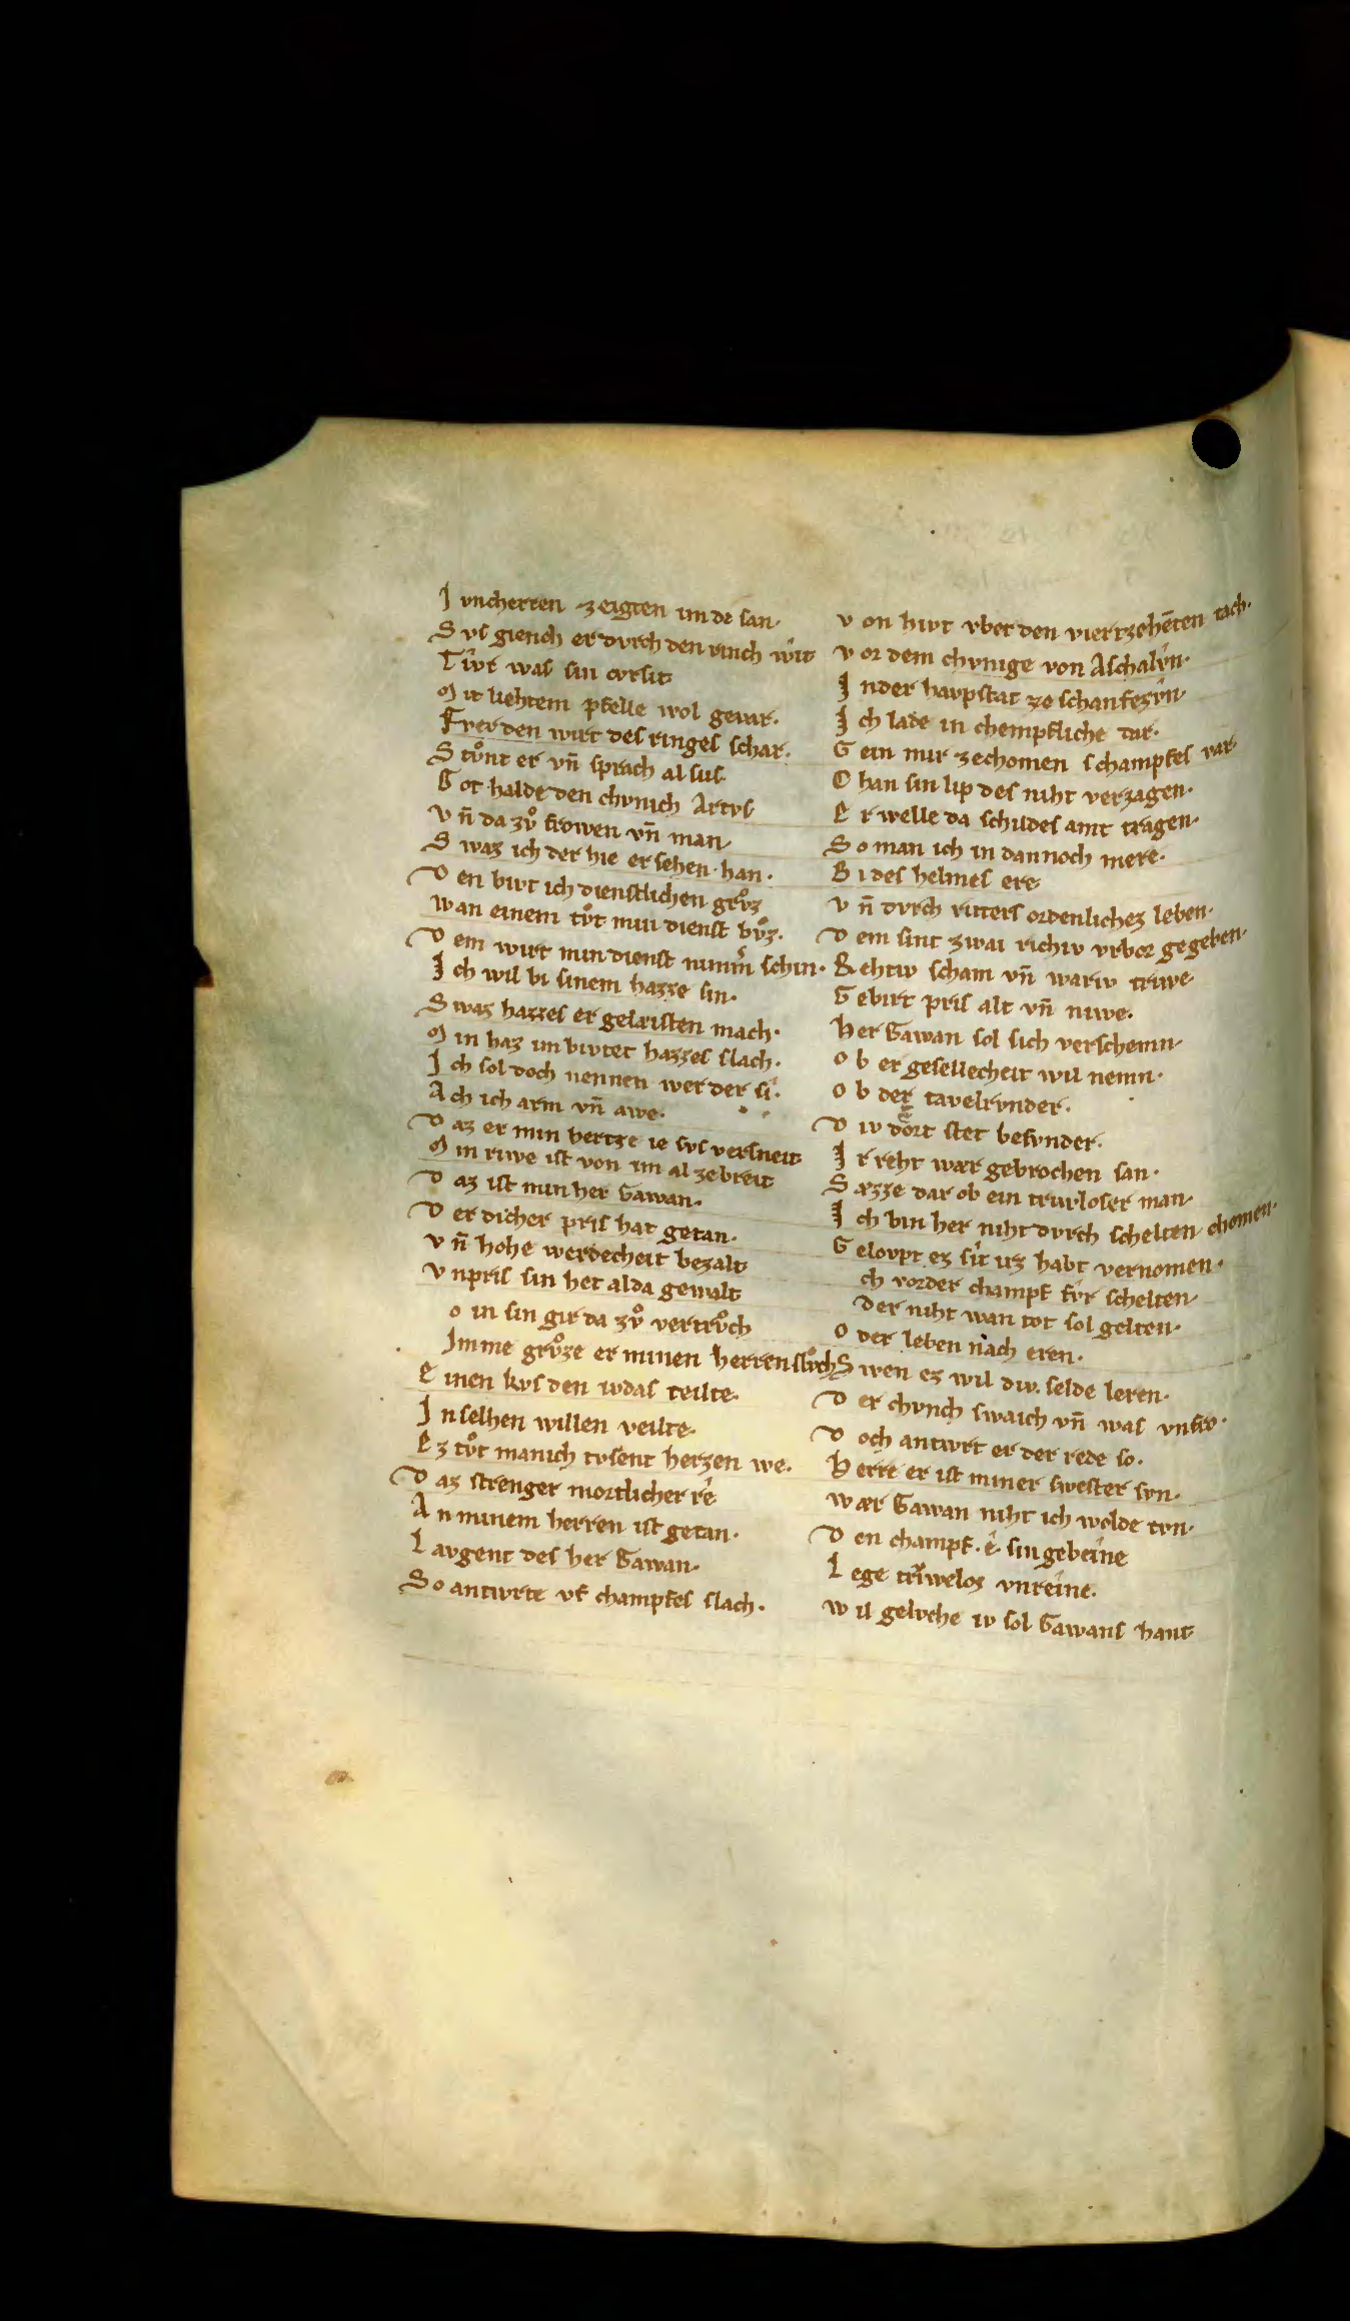 J vncherren zeigten im de san·
S vs giench er dvrch den rinch wît
T îvr was sin cvrsit
M it liehtem pfelle wol gevar·
F vr den wirt des ringes schar·
S tvͦnt er vn̄ sprach al sus·
G ot halde den chvnich Artvs
V n̄ da zvͦ frowen vn̄ man
S waz ich der hie ersehen han·
D en bivt ich dienstlichen grvͦz
wan einem tvͦt min dienst bvͦz·
D em wirt min dienst nimm̄ schin·
J ch wil bi sinem hazze sin·
S waz hazzes er gelæisten mach·
M in haz im bivtet hazzes slach·
J ch sol doch nennen wer der sî·
A ch ich arm vn̄ awe·
D az er min hertze ie svs versneit
M in rwe ist von im al ze breit
D az ist min her Gawan·
D er dicher pris hat getan·
V n̄ hohe werdecheit bezalt
V npris sin het alda gewalt
o in sin gir da zvͦ vertrvͦch
Jm me grvͦze er minen herren slvͦch
E inen kvs den wdas teilte·
J n selhen willen veilte·
E z tvͦt manich tvsent herzen we·
D az strenger mortlicher rê
A n minem herren ist getan·
L avgent des her Gawan·
So antwrte vf champfes slach·
V on hivt vber den viertzehēten tach·
V or dem chvnige von Aschalvn·
J n der havpstat ze schanfezvn·
J ch lade in chempfliche dar·
G ein mir ze chomen schampfes var·
C han sin lip des niht verzagen·
E r welle da schildes amt tragen·
S o man ich in dannoch mere·
B i des helmes ere
V n̄ dvrch ritters ordenlichez leben·
D em sint zwai richiv vrbor gegeben·
R ehtiv scham vn̄ wariv triwe
G ebirt pris alt vn̄ niwe·
her Gawan sol sich verschemn·
O b er gesellecheit wil nemn·
O b der tavelrvnder·
D iv dort stet besvnder·
J r reht wær gebrochen san·
S æzze dar ob ein trivrloser man·
J ch bin her niht dvrch schelten chomen·
G elovpt ez sît irz habt vernomen·
ch vorder champf fvr schelten
der niht wan tot sol gelten·
O der leben nach eren·
S wen ez wil div selde leren·
D er chvnch swaich vn̄ was vnfro·
D och antwrt er der rede so·
H erre er ist miner swester svn·
wær Gawan niht ich wolde tvn·
D en champf· ê· sin gebeîne
L ege trîwelos vnreîne·
w il gelvche iv sol Gawans hant